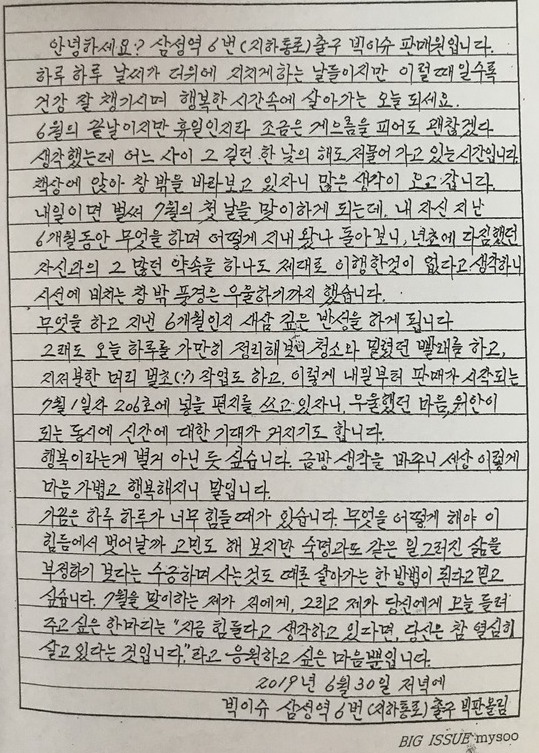 안녕하세요? 삼성역 6번 (지하통로) 출구 빅이슈 판매원입니다.
하루 하루 날씨가 더위에 지치게하는 날들이지만 이럴 때일수록
건강 잘 챙기시며 행복한 시간속에 살아가는 오늘 되세요.
6월의 끝날이지만 휴일인지라 조금은 게으름을 피어도 괜찮겠다
생각했는데 어느 사이 그 길던 한 낮의 해도 저물어 가고 있는 시간입니다.
책상에 앉아 창 밖을 바라보고 있자니 많은 생각이 오고 갑니다.
내일이면 벌써 7월의 첫 날을 맞이하게 되는데, 내 자신 지난
6개월동안 무엇을 하며 어떻게 지내 왔나 돌아보니, 년초에 다짐했던
자신과의 그 많던 약속을 하나도 제대로 이행한것이 없다고 생각하니
시선에 비치는 창 밖 풍경은 우울하기까지 했습니다.
무엇을 하고 지낸 6개월인지 새삼 깊은 반성을 하게 됩니다
그래도 오늘 하루를 가만히 정리해보니 청소와 밀렸던 빨래를 하고,
지저분한 머리 벌초(?) 작업도 하고, 이렇게 내일부터 판매가 시작되는
7월 1일자 206호에 넣을 편지를 쓰고 있자니, 우울했던 마음, 위안이
되는 동시에 신간에 대한 기대가 커지기도 합니다.
행복이라는게 별거 아닌 듯 싶습니다. 금방 생각을 바꾸니 세상 이렇게
마음 가볍고 행복해지니 말입니다.
가끔은 하루 하루가 너무 힘들 때가 있습니다. 무엇을 어떻게 해야 이
힘듬에서 벗어날까 고민도 해 보지만 숙명과도 같은 일그러진 삶을
부정하기 보다는 수긍하며 사는것도 때로 살아가는 한 방법이 된다고 믿고
싶습니다. 7월을 맞이하는 제가 저에게, 그리고 제가 당신에게 오늘 들려
주고 싶은 한마디는 "지금 힘들다고 생각하고 있다면, 당신은 참 열심히
살고 있다는 것입니다."라고 응원하고 싶은 마음뿐입니다.
2019년 6월 30일 저녁에
빅이슈 삼성역 6번 (지하통로) 출구 빅판올림
BIG ISSUE mysoo